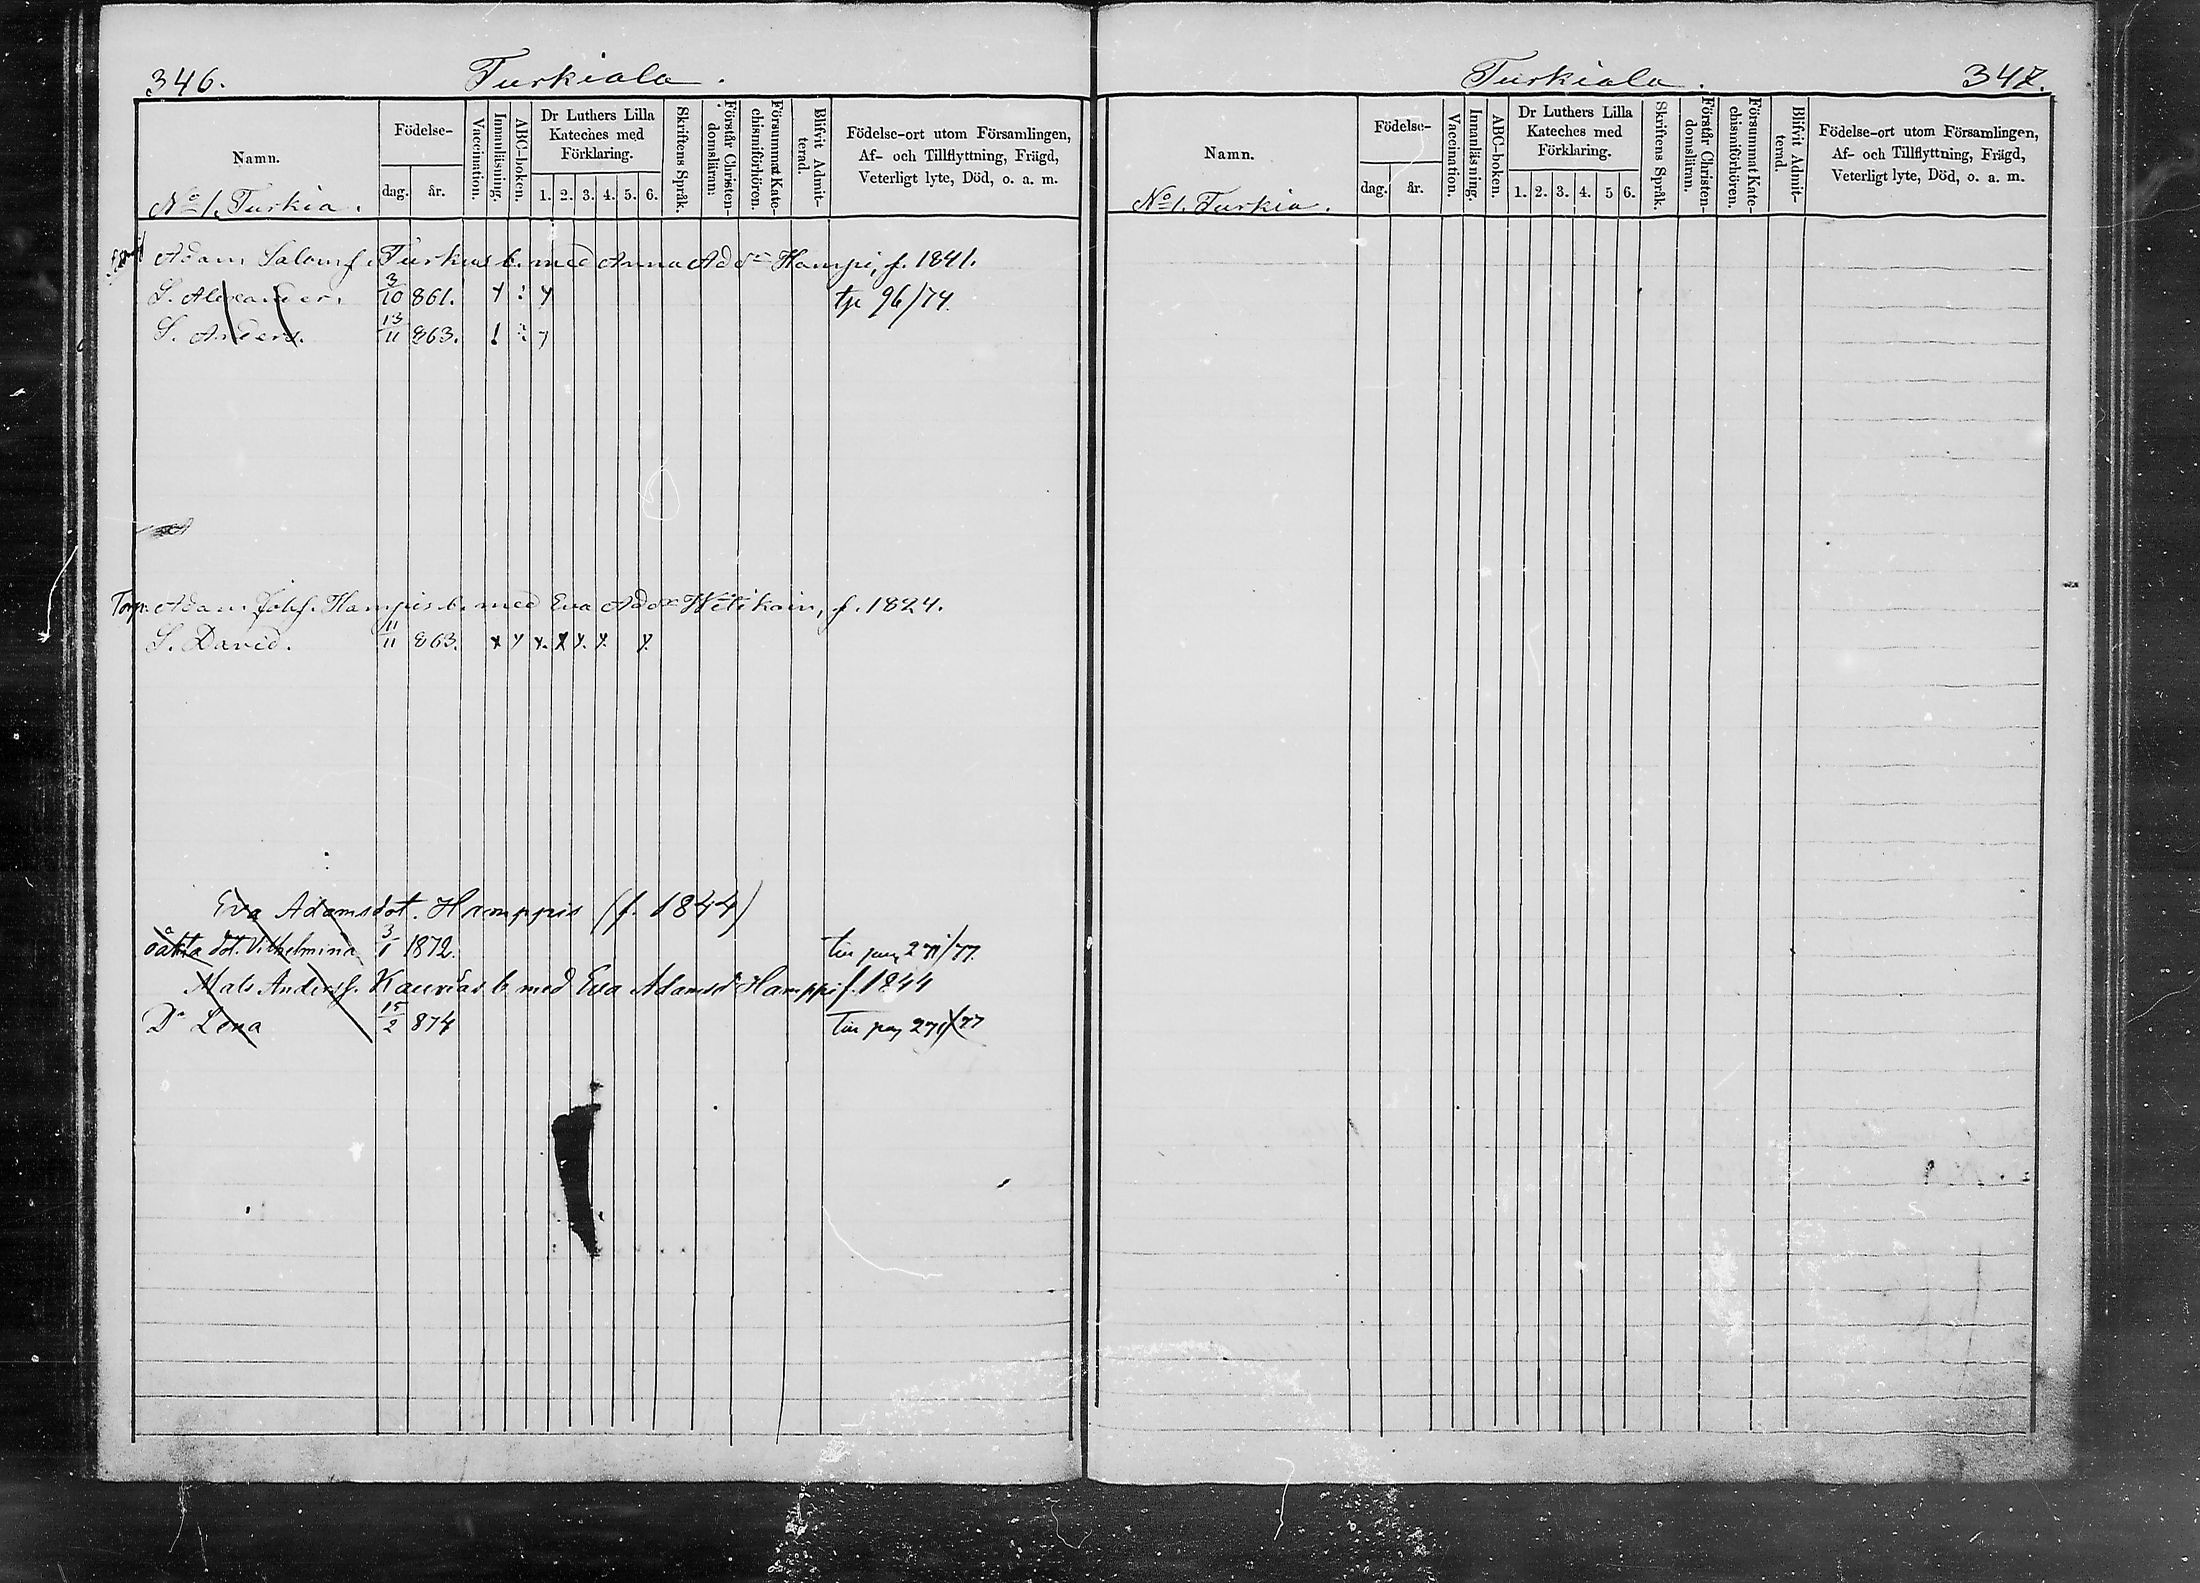 346. Turkiala.
Namn.
Födelse-
dag. år.
Vaccination.
Innanläsning.
ABC-boken.
Dr Luthers Lilla Kateches med Förklaring.
1. 2. 3. 4. 5. 6.
Skriftens Språk.
Förstår Christendomsläran.
Försummat Katechismiförhören.
Blifvit Admitterad.
Födelse-ort utom Församlingen,
Af- och Tillflyttning, Frägd,
Veterligt lyte, Död, o. a. m.
No 1. Turkia.
Adam Salomss. Turkus b. med Anna Adsdr Hamppi, f. 1841.
S. Alexander. 3/10 861. tje 96/74.
S. Anders. 13/11 863.
Torp. Adam Hampis b. med Eva Wetikoin, f. 1824.
S. David. 11/11 863.
Eva Adamsdot. Hamppis (f. 1844)
oäkta dot. Vilhelmina 3/1 1872. 271/77.
Mats Anderss. Kaurias b. med Eva Adamsdr Hamppi f. 1844
Dr Lena 15/2 874 271/77
Turkiala. 347.
Namn.
Födelse-
dag. år.
Vaccination.
Innanläsning.
ABC-boken.
Dr Luthers Lilla Kateches med Förklaring.
1. 2. 3. 4. 5 6.
Skriftens Språk.
Förstår Christendomsläran.
Försummat Katechismiförhören.
Blifvit Admitterad.
Födelse-ort utom Församlingen,
Af- och Tillflyttning, Frägd,
Veterligt lyte, Död, o. a. m.
No 1. Turkia.